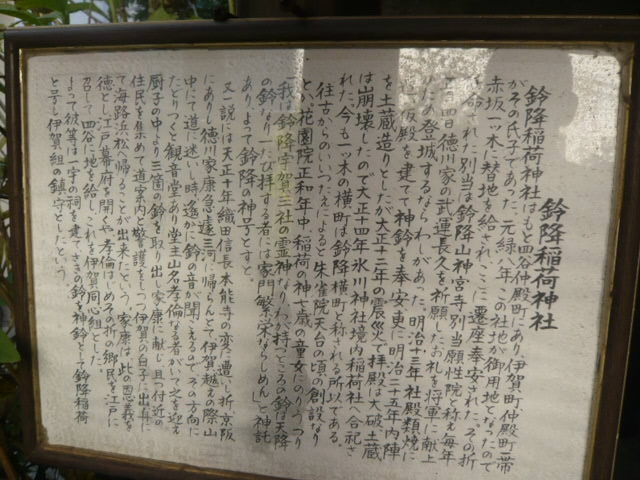 鈴降稲荷神社
鈴降稲荷神社はもと四谷仲殿町にあり、伊賀町仲殿町一帯
がその氏子であった。元禄八年この社地が御用地となったので
赤坂一ッ木に替地を給されここに遷座奉安された。その折
を命ぜられた別当は鈴降山神宮寺別当願性院と称え毎年
四日徳川家の武運長久を祈願したお札を将軍に献上
登城するならわしがあった。明治十三年社殿類焼に
仮殿を建てて神鈴を奉安更に明治二十五年内陣
を土蔵造りとしたが大正十二年の震災で拝殿は大破土蔵
は崩壊したので大正十四年氷川神社境内稲荷社へ合祀さ
れた。今も一ッ木の横町は鈴降横町と称される所以である。
往古からのいいつたえによると朱雀院天台の頃の創設なり
と、花園院正和年中、稲荷の神七歳の童女にのりうつり
「我は鈴降宇賀三社の霊神なりわが持つところの鈴は天降
の鈴なり一度び拝する者には家門繁栄ならしめん」と神託
ありよって鈴降の神号とすと。
又一説には天正十年織田信長本能寺の変に遭いし折京阪
にありし徳川家康急遽三河に帰らんとて伊賀越の際山
中にて道に迷いし時遙かに鈴の音が聞こえるのでその方向に
たどりつくと観音堂あり堂主山名孝倫なる者がいて之を迎え
厨子の中より三箇の鈴を取り出し家康に献じ且つ付近の
住民を集めて道案内と警護をしつつ伊賀の白子に出舟に
て海路浜松へ帰ることが出来たという。家康は此の恩義を
徳とし江戸幕府を開くや孝倫はじめその折の郷民を江戸に
召して四谷に地を給しこれを伊賀同心組とした。
よって彼等は一宇の祠を建てさきの鈴を神鈴として鈴降稲荷
と号し伊賀組の鎮守としたという。